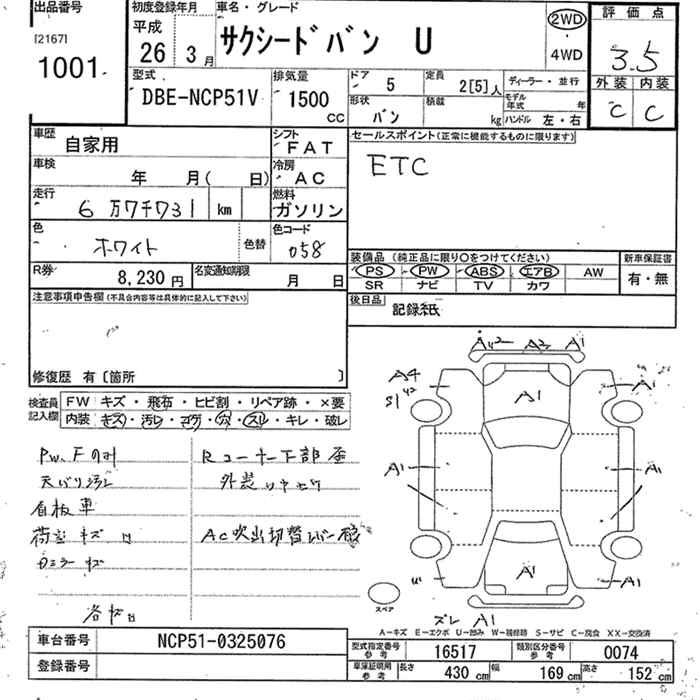 出品番号
[2167]
1001
初度登録年月
平成
26 3月
車名・グレード
サクシードバン U
2WD
4WD
評価点
3.5
外装 内装
C C
型式
DBE-NCP51V
排気量
1500
CC
ドア 5
定員 2[5]人
ディーラー・並行
形状 バン
積載 kg
モデル年式 年
ハンドル 左・右
車歴 自家用
シフト FAT
セールスポイント(正常に機能するものに限ります)
ETC
車検 年 月( 日)
冷房 AC
走行 6万7千731 km
燃料 ガソリン
色 ホワイト
色替
色コード 058
装備品 (純正品に限り○をつけてください)
新車保証書
PS PW ABS エアB AW
SR ナビ TV カワ
有・無
R券 8,230円
名変通知期限 月 日
後日品 記録紙
注意事項申告欄(不具合内容等は具体的に記入して下さい)
修復歴 有〔箇所 〕
検査員記入欄
FW キズ・飛石・ヒビ割・リペア跡・×要
内装 キズ・汚レ・コゲ・穴・スレ・キレ・破レ
PW、Fのみ
天バリ汚れ
看板車
A2 A1
A1
A1
A1
A1
A1
A1
スペア
A1
A-キズ E-エクボ U-凹み W-補修跡 S-サビ C-腐食 XX-交換済
車台番号 NCP51-0325076
登録番号
型式指定番号 参考 16517
類別区分番号 参考 0074
車庫証明用 参考
長さ 430 cm
幅 169 cm
高さ 152 cm